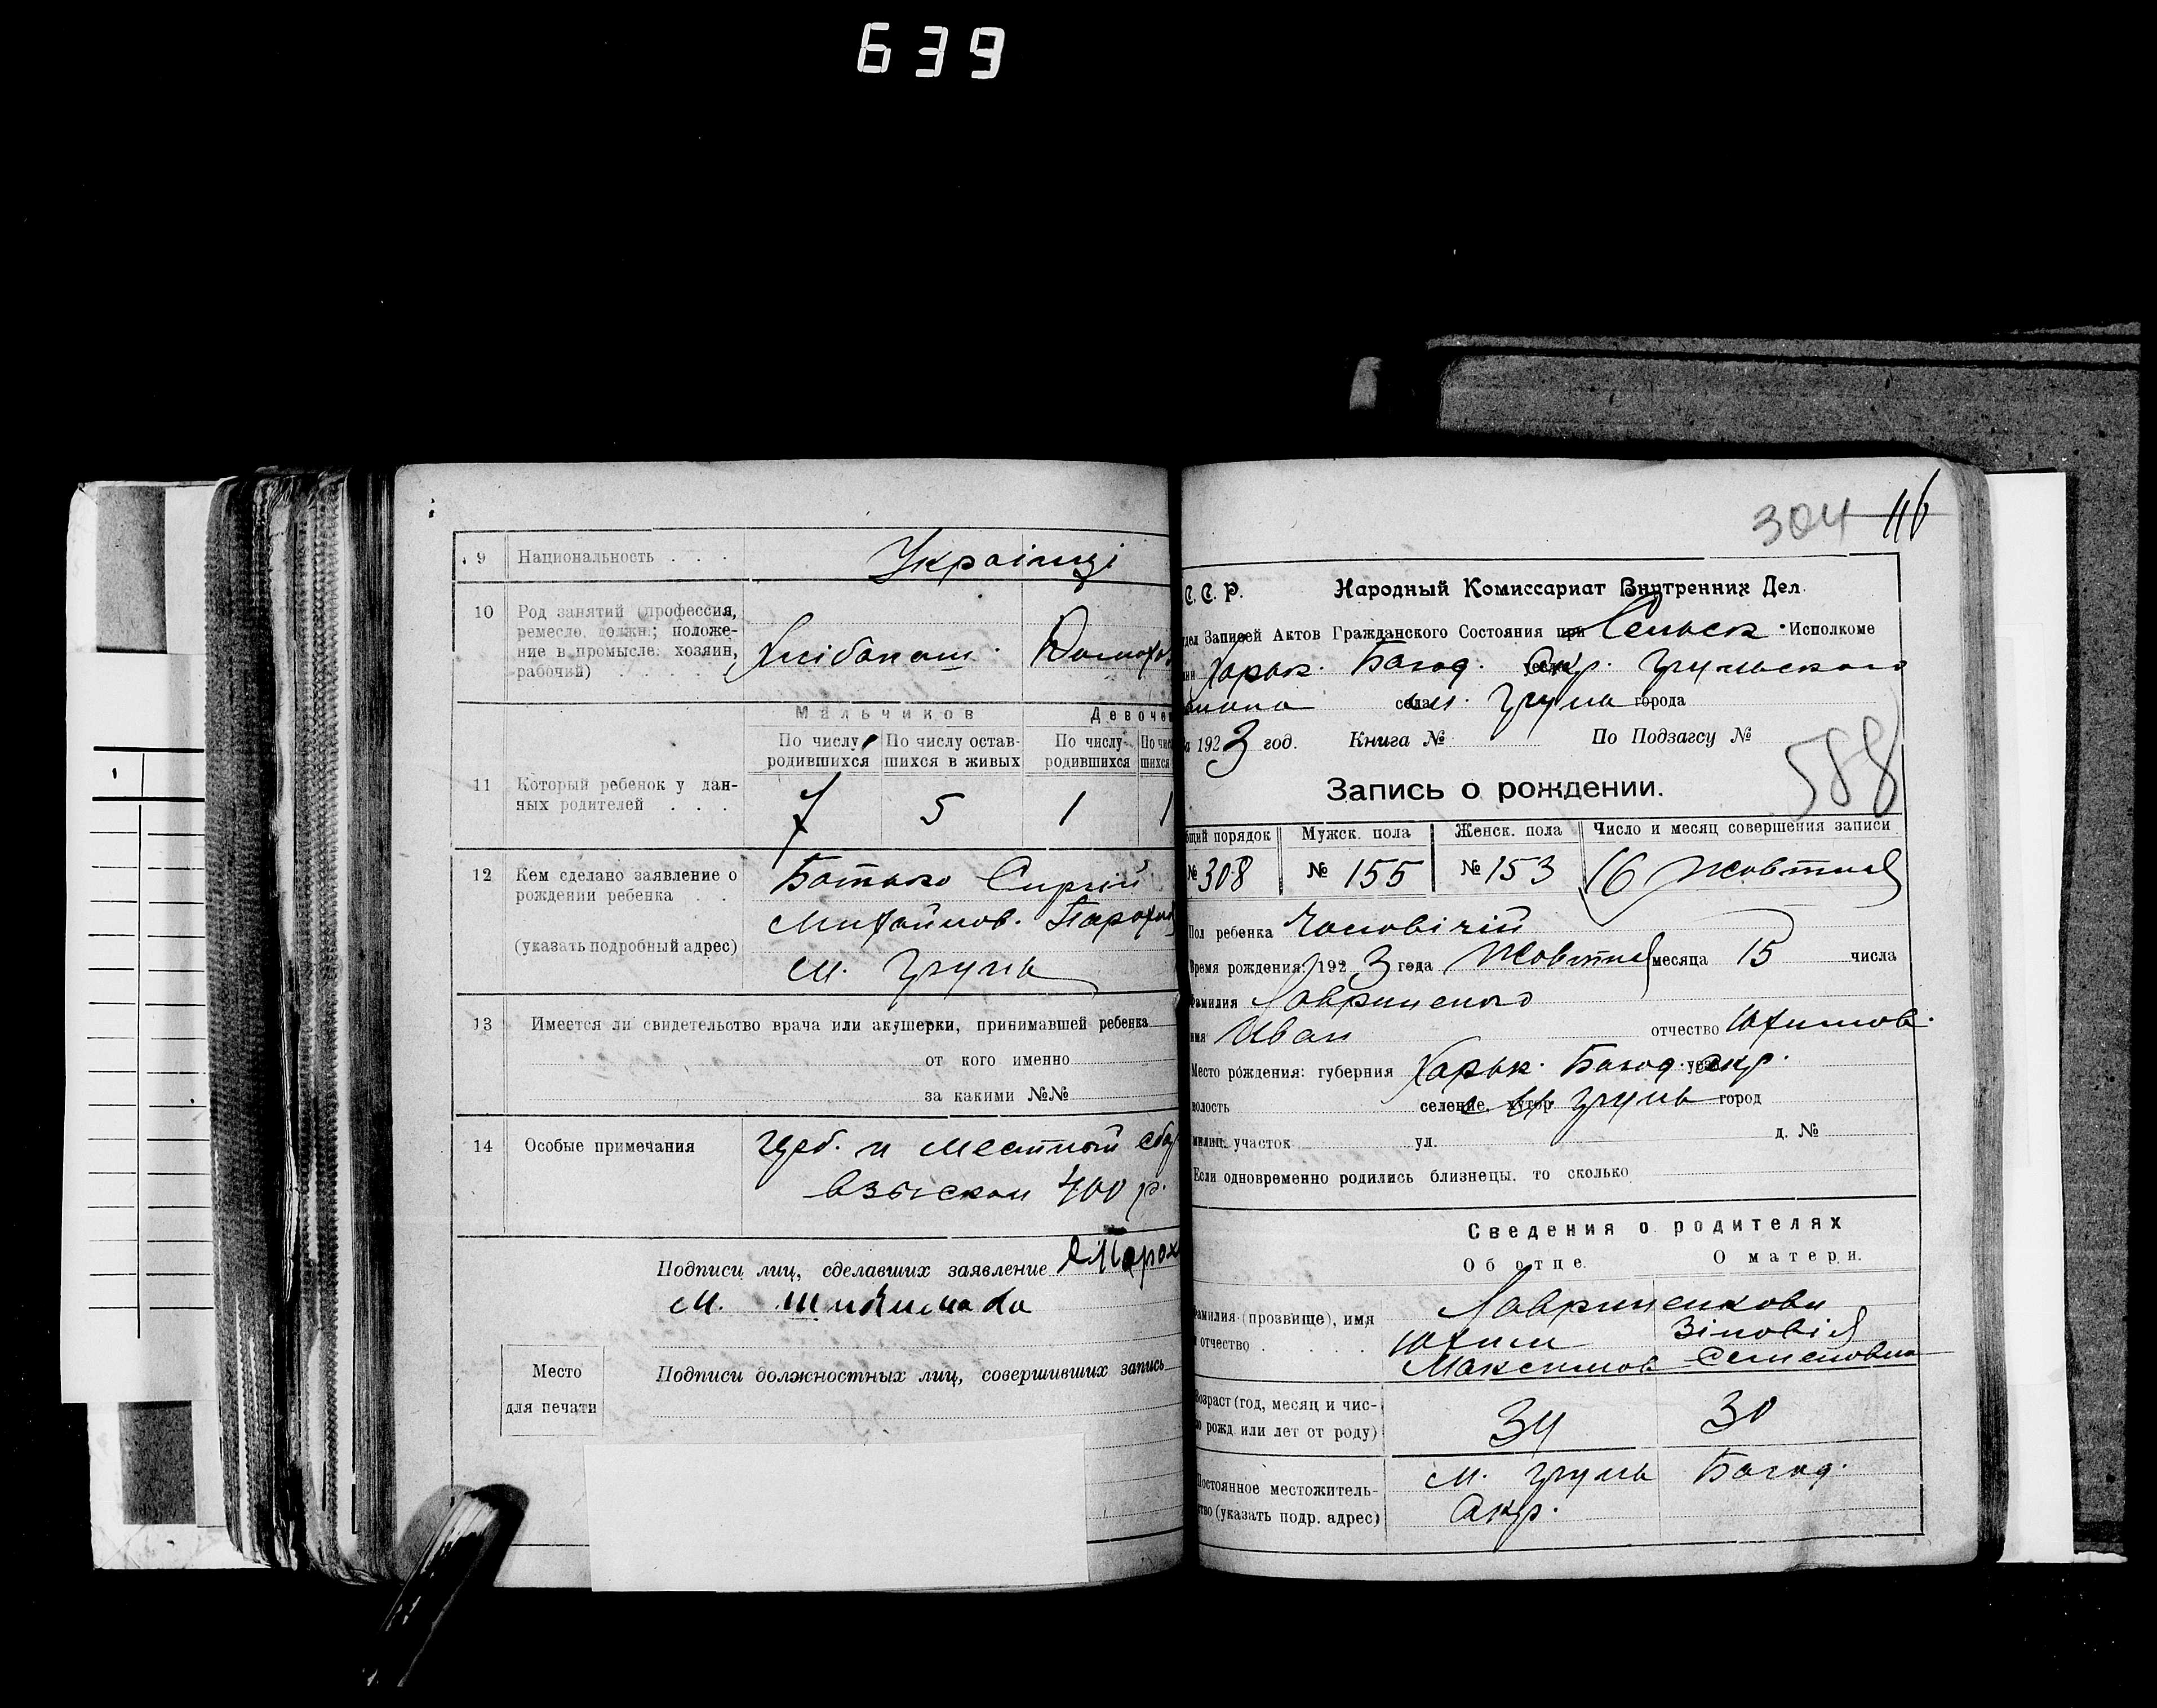 639
9 Национальность . . . Українці
10 Род занятий (профессия,
ремесло, должн.; положе-
ние в промысле: хозяин,
рабочий) . . . .
Хлібопаш. Домохоз
Мальчиков Девоче
По числу По числу остав- По числу По чис
родившихся шихся в живых родившихся шихся
11 Который ребенок у дан-
ных родителей . . .
7 5 1 1
12 Кем сделано заявление о
рождении ребенка . .
(указать подробный адрес)
Батько Сиргій
Михайлов. Парохн
м. Груль
13 Имеется ли свидетельство врача или акушерки, принимавшей ребенка
от кого именно
за какими №№
14 Особые примечания
губ. и местный сбор
взыскан 400 р.
Подписи лиц, сделавших заявление
М.
Место
для печати
Подписи должностных лиц, совершивших запись
304 116
С. С. Р. Народный Комиссариат Внутренних Дел.
дел Записей Актов Гражданского Состояния при Сельск. Исполкоме
Харьк. Богод. окр. Грульского
села м. Груль города
192 3 год. Книга № По Подзагсу №
588
Запись о рождении.
бщий порядок Мужск. пола Женск. пола Число и месяц совершения записи
№ 308 № 155 № 153 16 Жовтня
Пол ребенка Чоловічій
Время рождения: 192 3 года Жовтня месяца 15 числа
Фамилия Лавриненко
имя Иван отчество Юхимов.
Место рождения: губерния Харьк. Богод. окр.
волость селение, хутор м. Груль город
милиц. участок ул. д. №
Если одновременно родились близнецы, то сколько
Сведения о родителях
Об отце. О матери.
Фамилия (прозвище), имя
и отчество . . . .
Лавриненкови
Юхим Зіновія
Максимов Семеновна
Возраст (год, месяц и чис-
ло рожд. или лет от роду)
34 30
Постоянное местожитель-
ство (указать подр. адрес)
м. Груль Богод.
Окр.